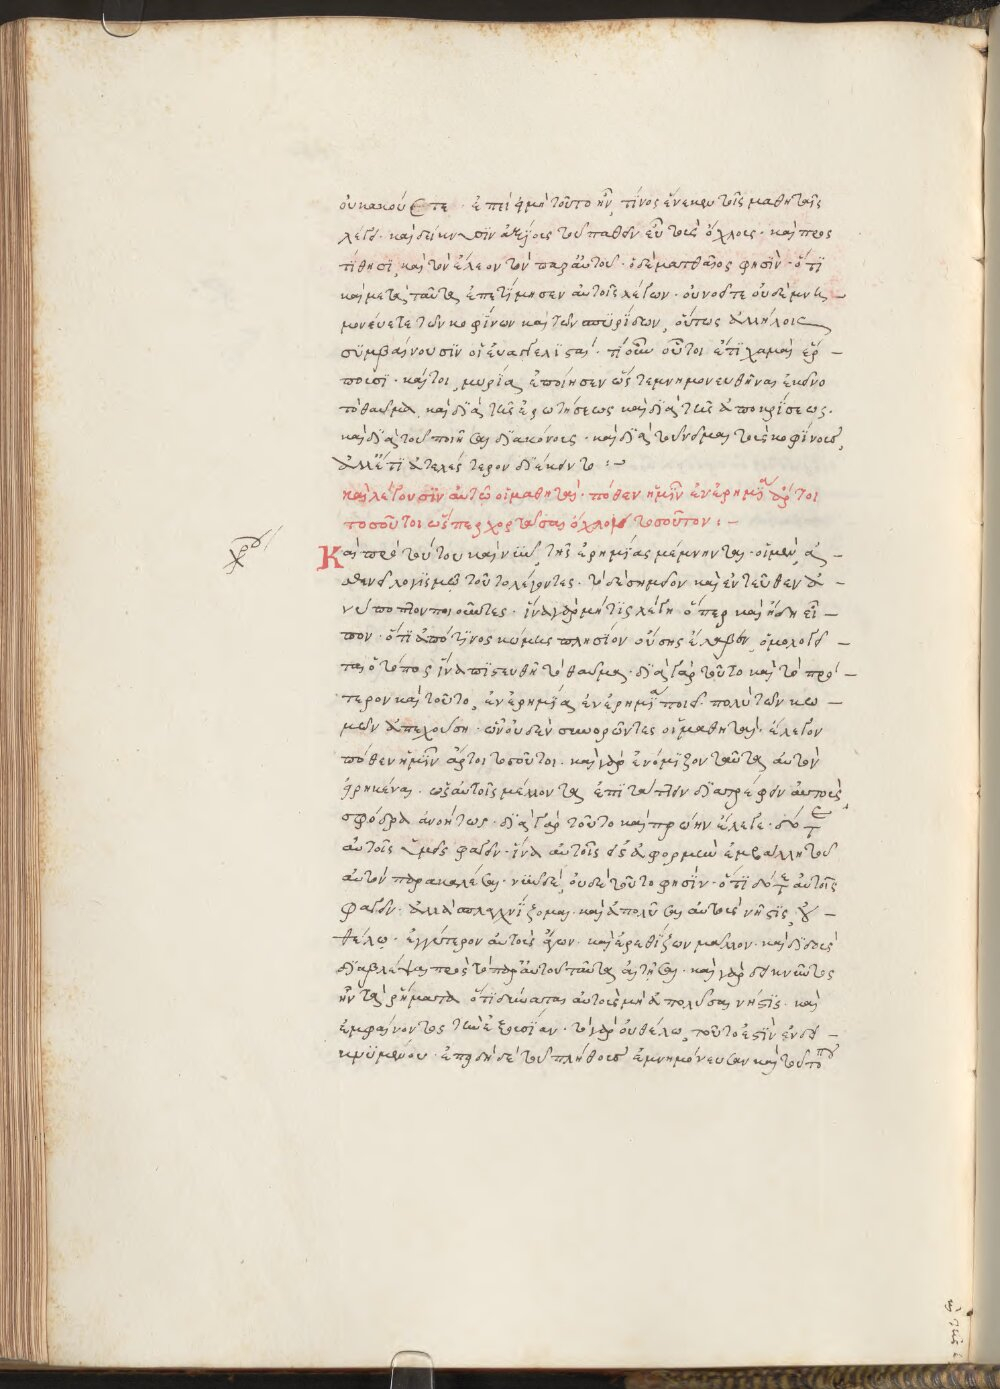 οὐκ ἀκούετε · ἐπεὶ εἰ μὴ τοῦτο ἦν, τίνος ἕνεκεν τοῖς μαθηταῖς
λέγει · καὶ δείκνυσιν ἀξίοις τοῦ παθεῖν εὖ τοὺς ὄχλους · καὶ προσ
τίθησι, καὶ τὸν ἔλεον τὸν παρ αὐτοῦ · ὁ δὲ ματθαῖος φησὶν · ὅτι
καὶ μετὰ ταῦτα ἐπετίμησεν αὐτοῖς λέγων · οὐ νοεῖτε οὐδὲ μνη
μονεύετε τῶν κοφίνων καὶ τῶν σπυρίδων, οὕτως ἀλλήλοις
συμβαίνουσιν οἱ εὐαγγελισταί · τί οὖν οὗτοι ἔτι χαμαὶ ἕρ
πουσι · καίτοι, μυρία ἐποίησεν ὥστε μνημονευθῆναι ἐκεῖνο
τὸ θαῦμα, καὶ διὰ τῆς ἐρωτήσεως καὶ διὰ τῆς ἀποκρίσεως ·
καὶ διὰ τοῦ ποιῆσαι διακόνους · καὶ διὰ τοῦ νεῖμαι τοὺς κοφίνους,
ἀλλ ἔτι ἀτελέστερον διέκειντο :
καὶ λέγουσιν αὐτῷ οἱ μαθηταί · πόθεν ἡμῖν ἐν ἐρημίᾳ ἄρτοι
τοσοῦτοι ὥστε χορτάσαι ὄχλον τοσοῦτον :
χρυ
Καίπερ τούτου καὶ νῦν, τῆς ἐρημίας μέμνηνται · οἱ μὲν, ἀ
σθενεῖ λογισμῷ τοῦτο λέγοντες · τὸ δὲ σημεῖον καὶ ἐντεῦθεν ἀ
νύποπτον ποιοῦντες · ἵνα γὰρ μή τις λέγη ὅπερ καὶ ἤδη εἶ
πον · ὅτι ἀπό τινος κώμης πλησίον οὔσης ἔλαβεν, ὁμολογεῖ
ται ὁ τόπος ἵνα πιστευθῆ τὸ θαῦμα · διὰ γὰρ τοῦτο καὶ τὸ πρό
τερον καὶ τοῦτο, ἐν ἐρημία ἐν ἐρημία ποιεῖ · πολὺ τῶν κω
μῶν ἀπεχούση · ὧν οὐδὲν συνορῶντες οἱ μαθηταὶ · ἔλεγον
πόθεν ἡμῖν ἄρτοι τοσοῦτοι · καὶ γὰρ ἐνόμιζον ταῦτα αὐτὸν
εἰρηκέναι · ὡς αὐτοῖς μέλλοντα ἐπιτάττειν διατρέφειν αὐτοὺς,
σφόδρα ἀνοήτως · διὰ γὰρ τοῦτο καὶ πρώην ἔλεγε · δότε
αὐτοῖς ὑμεῖς φαγεῖν · ἵνα αὐτοῖς εἰς ἀφορμὴν ἐμβάλλη τοῦ
αὐτὸν παρακαλέσαι · νῦν δὲ, οὐδὲ τοῦτο φησὶν · ὅτι δότε αὐτοῖς
φαγεῖν · ἀλλὰ σπλαγχνίζομαι · καὶ ἀπολῦσαι αὐτοὺς νήστις, οὐ
θέλω · ἐγγύτερον αὐτοὺς ἄγων · καὶ ἐρεθίζων μᾶλλον · καὶ διδοὺς
διαβλέψαι πρὸς τὸ παρ αὐτοῦ ταῦτα αἰτῆσαι · καὶ γὰρ δεικνῦντος
ἦν τὰ ῥήματα ὅτι δύναται αὐτοὺς μὴ ἀπολῦσαι νήστις · καὶ
ἐμφαίνοντος τὴν ἐξουσίαν · τὸ γὰρ οὐ θέλω, τοῦτο ἐστὶν ἐνδει
κνυμένου · ἐπειδὴ δὲ τοῦ πλήθους ἐμνημόνευσαν καὶ τοῦ τόπου